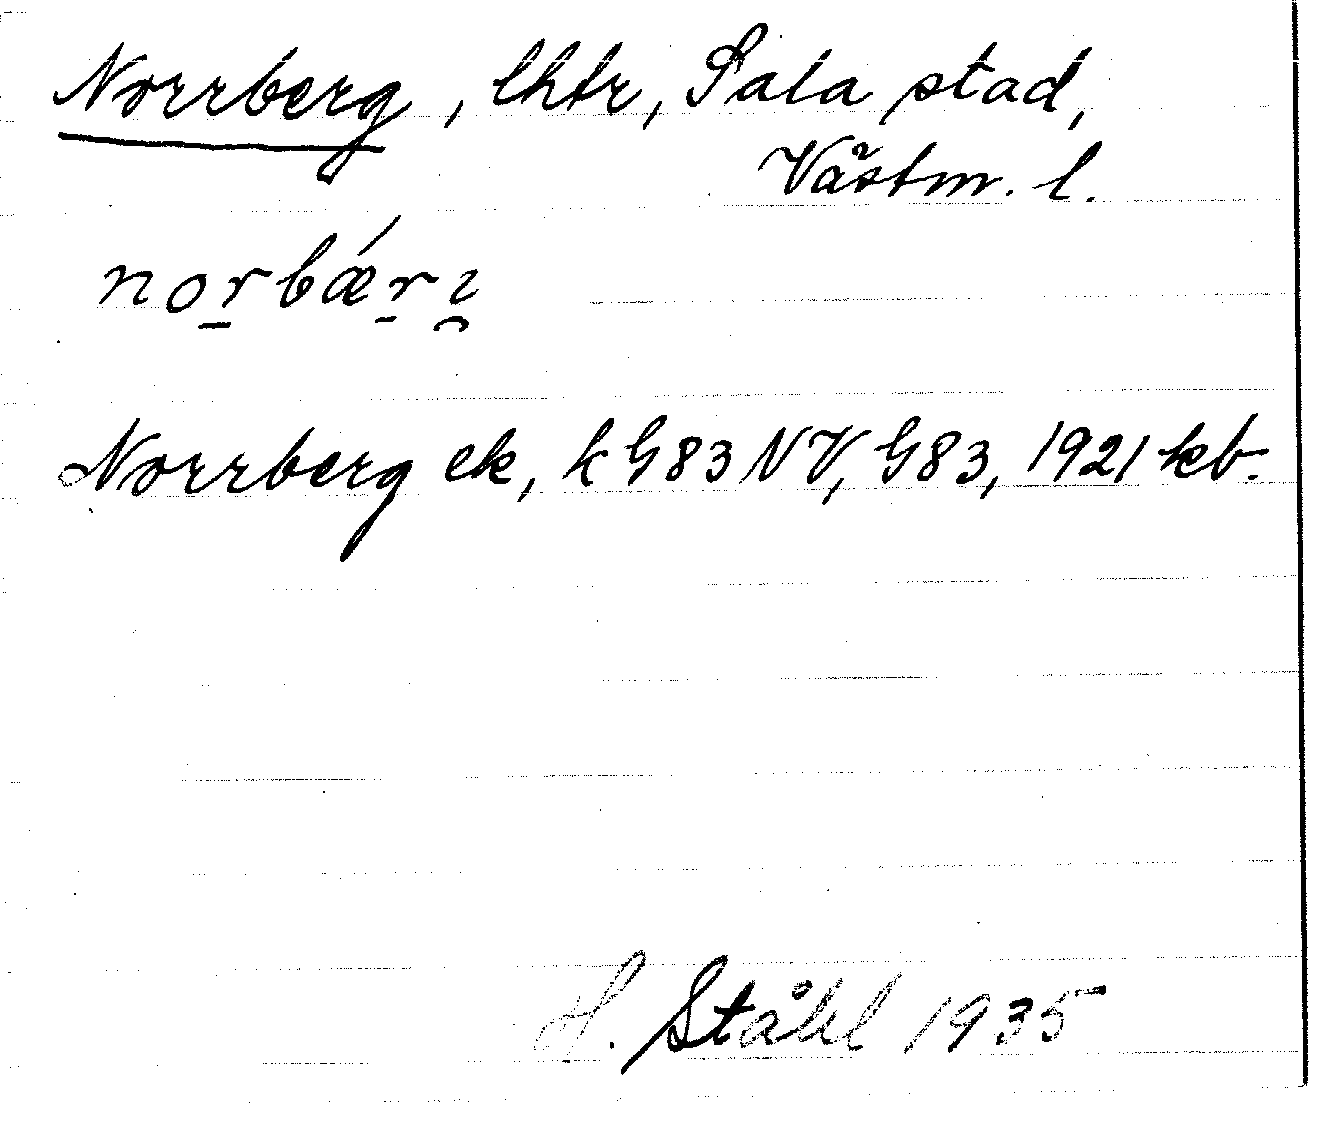 Norrberg, lhtr, Sala stad,
Västm. l.
norbǽrı̯
Norrberg ek, k G83 NV, G83, 1921 kb.
H. Ståhl 1935